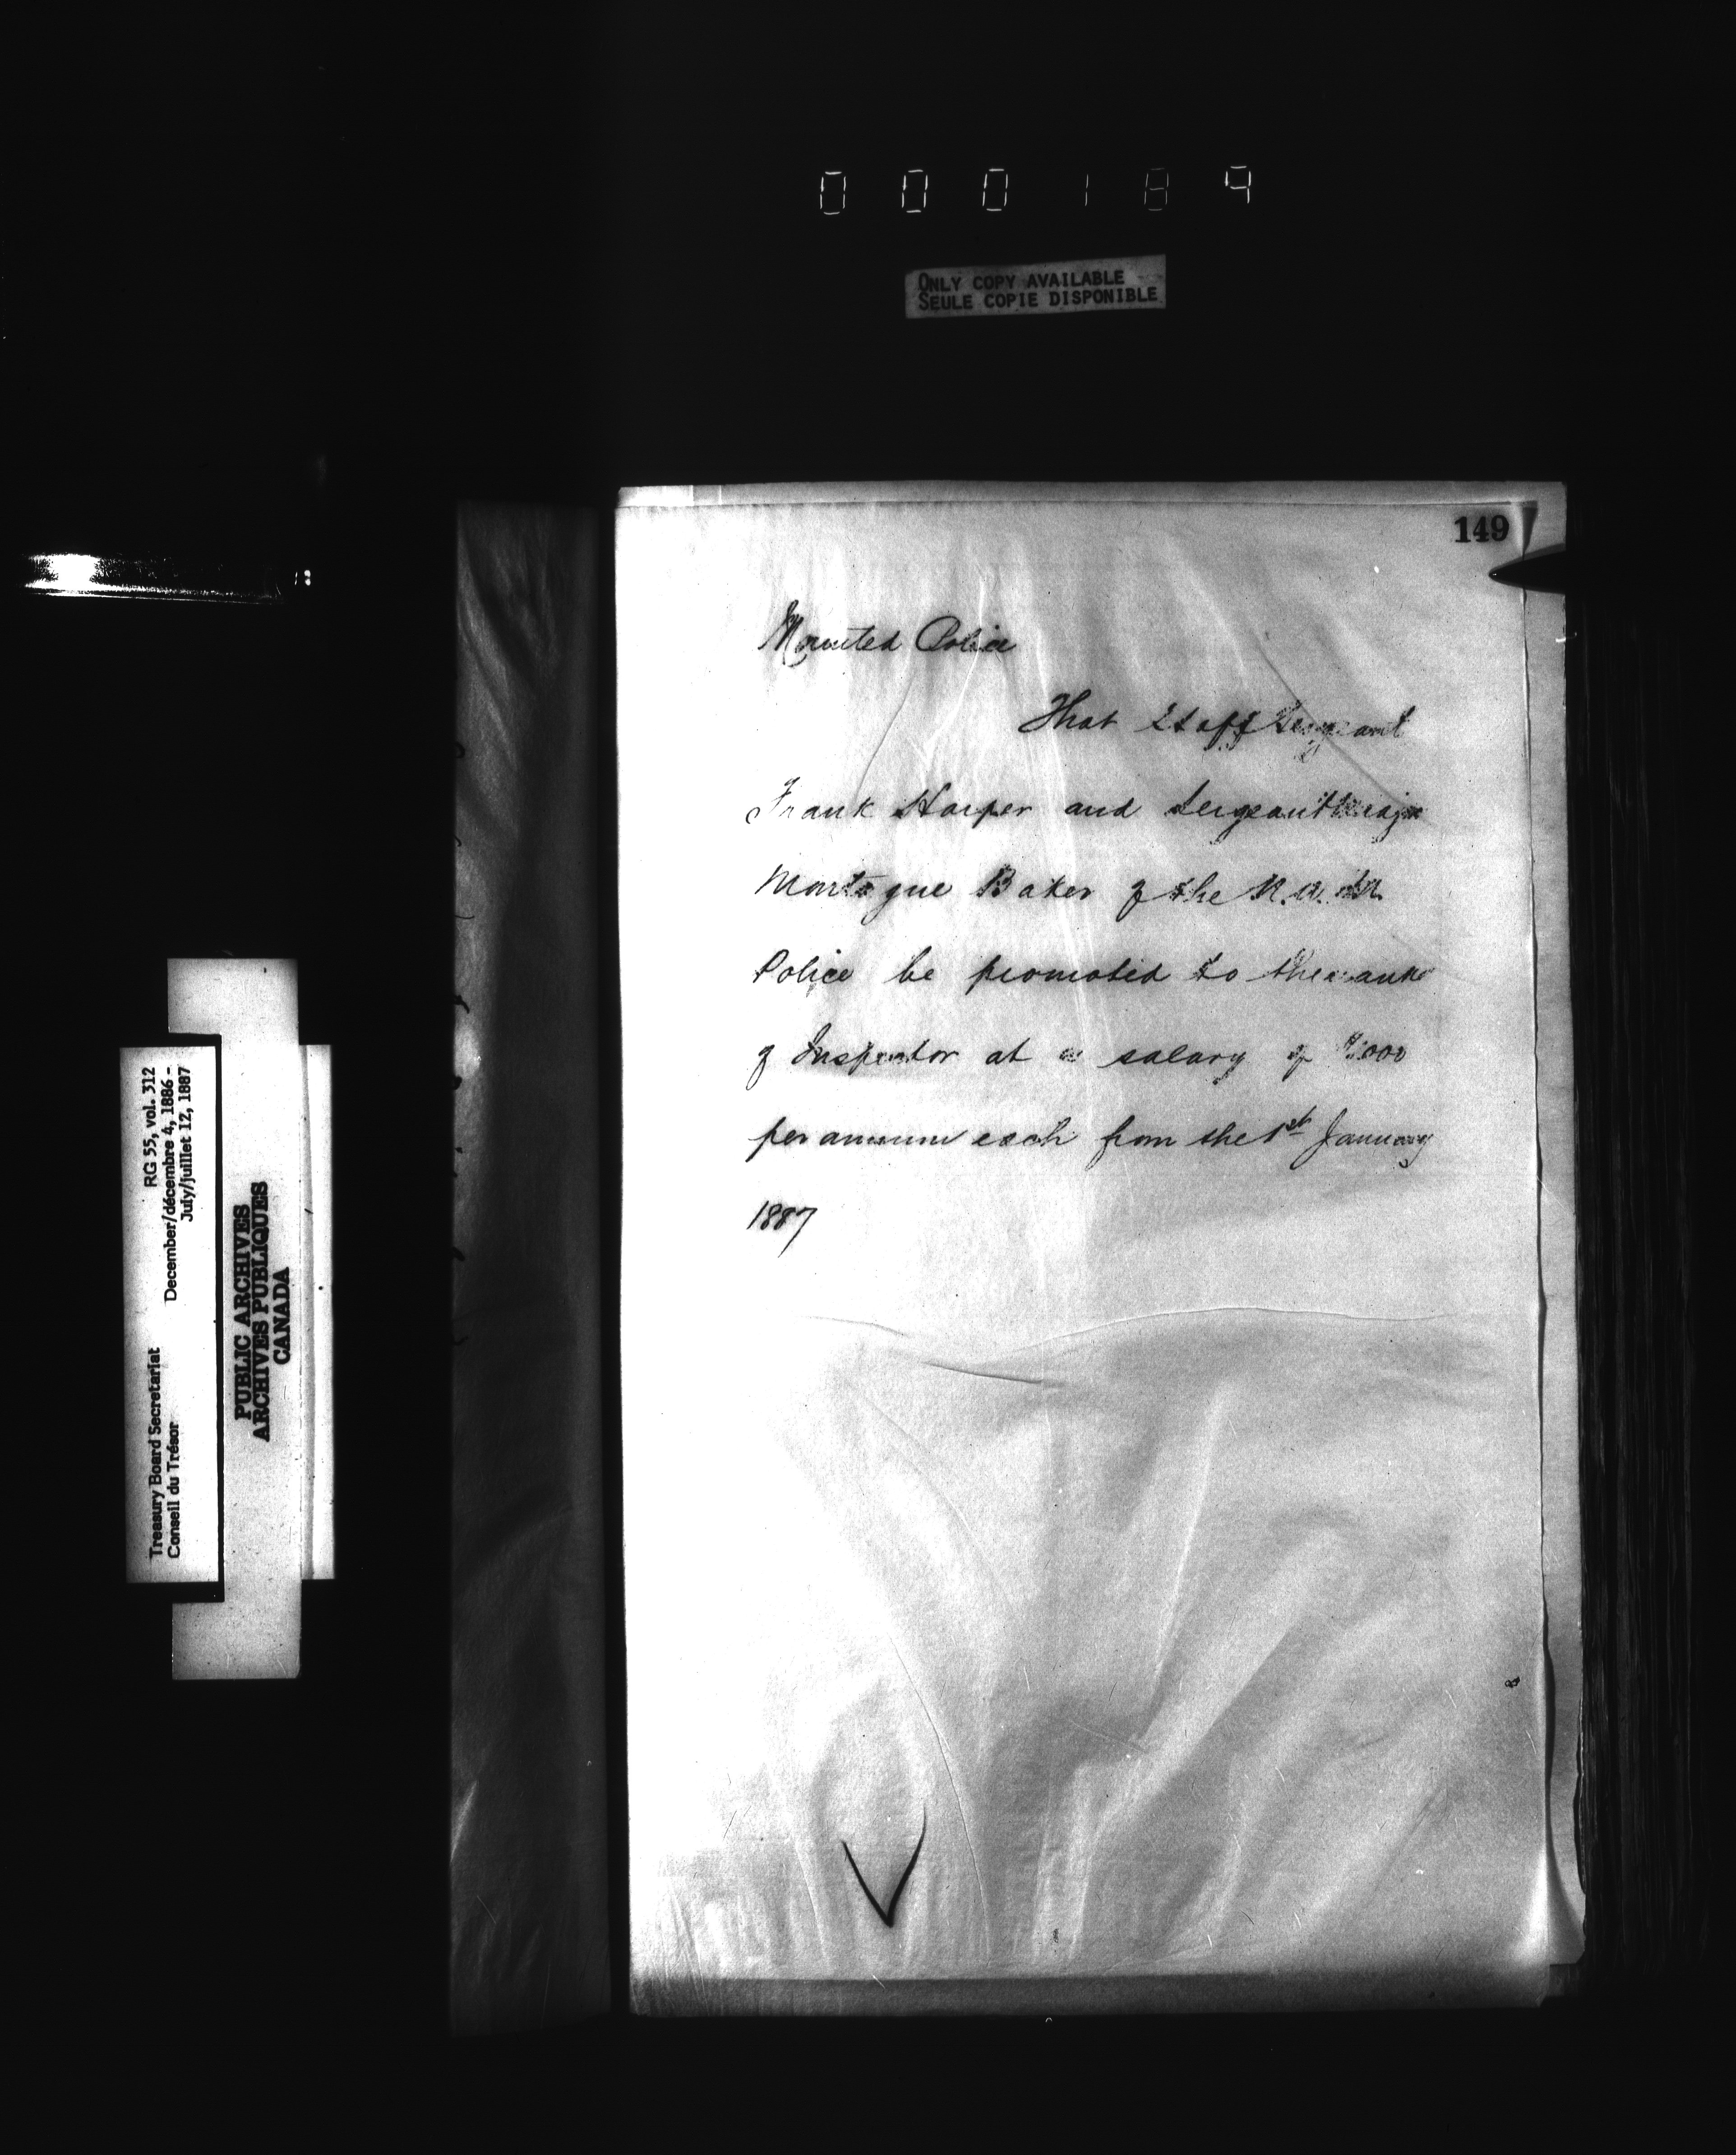 000189
ONLY COPY AVAILABLE
SEULE COPIE DISPONIBLE
149
Mounted Police
That Staff Sergeant
Frank Harper and Sergeant Major
Montague Baker of the N. W. M.
Police be promoted to the rank
of Inspector at a salary of $1000
per annum each from the 1st January
1887
Treasury Board Secretariat RG 55, vol. 312
Conseil du Trésor December/décembre 4, 1886 -
July/juillet 12, 1887
PUBLIC ARCHIVES
ARCHIVES PUBLIQUES
CANADA